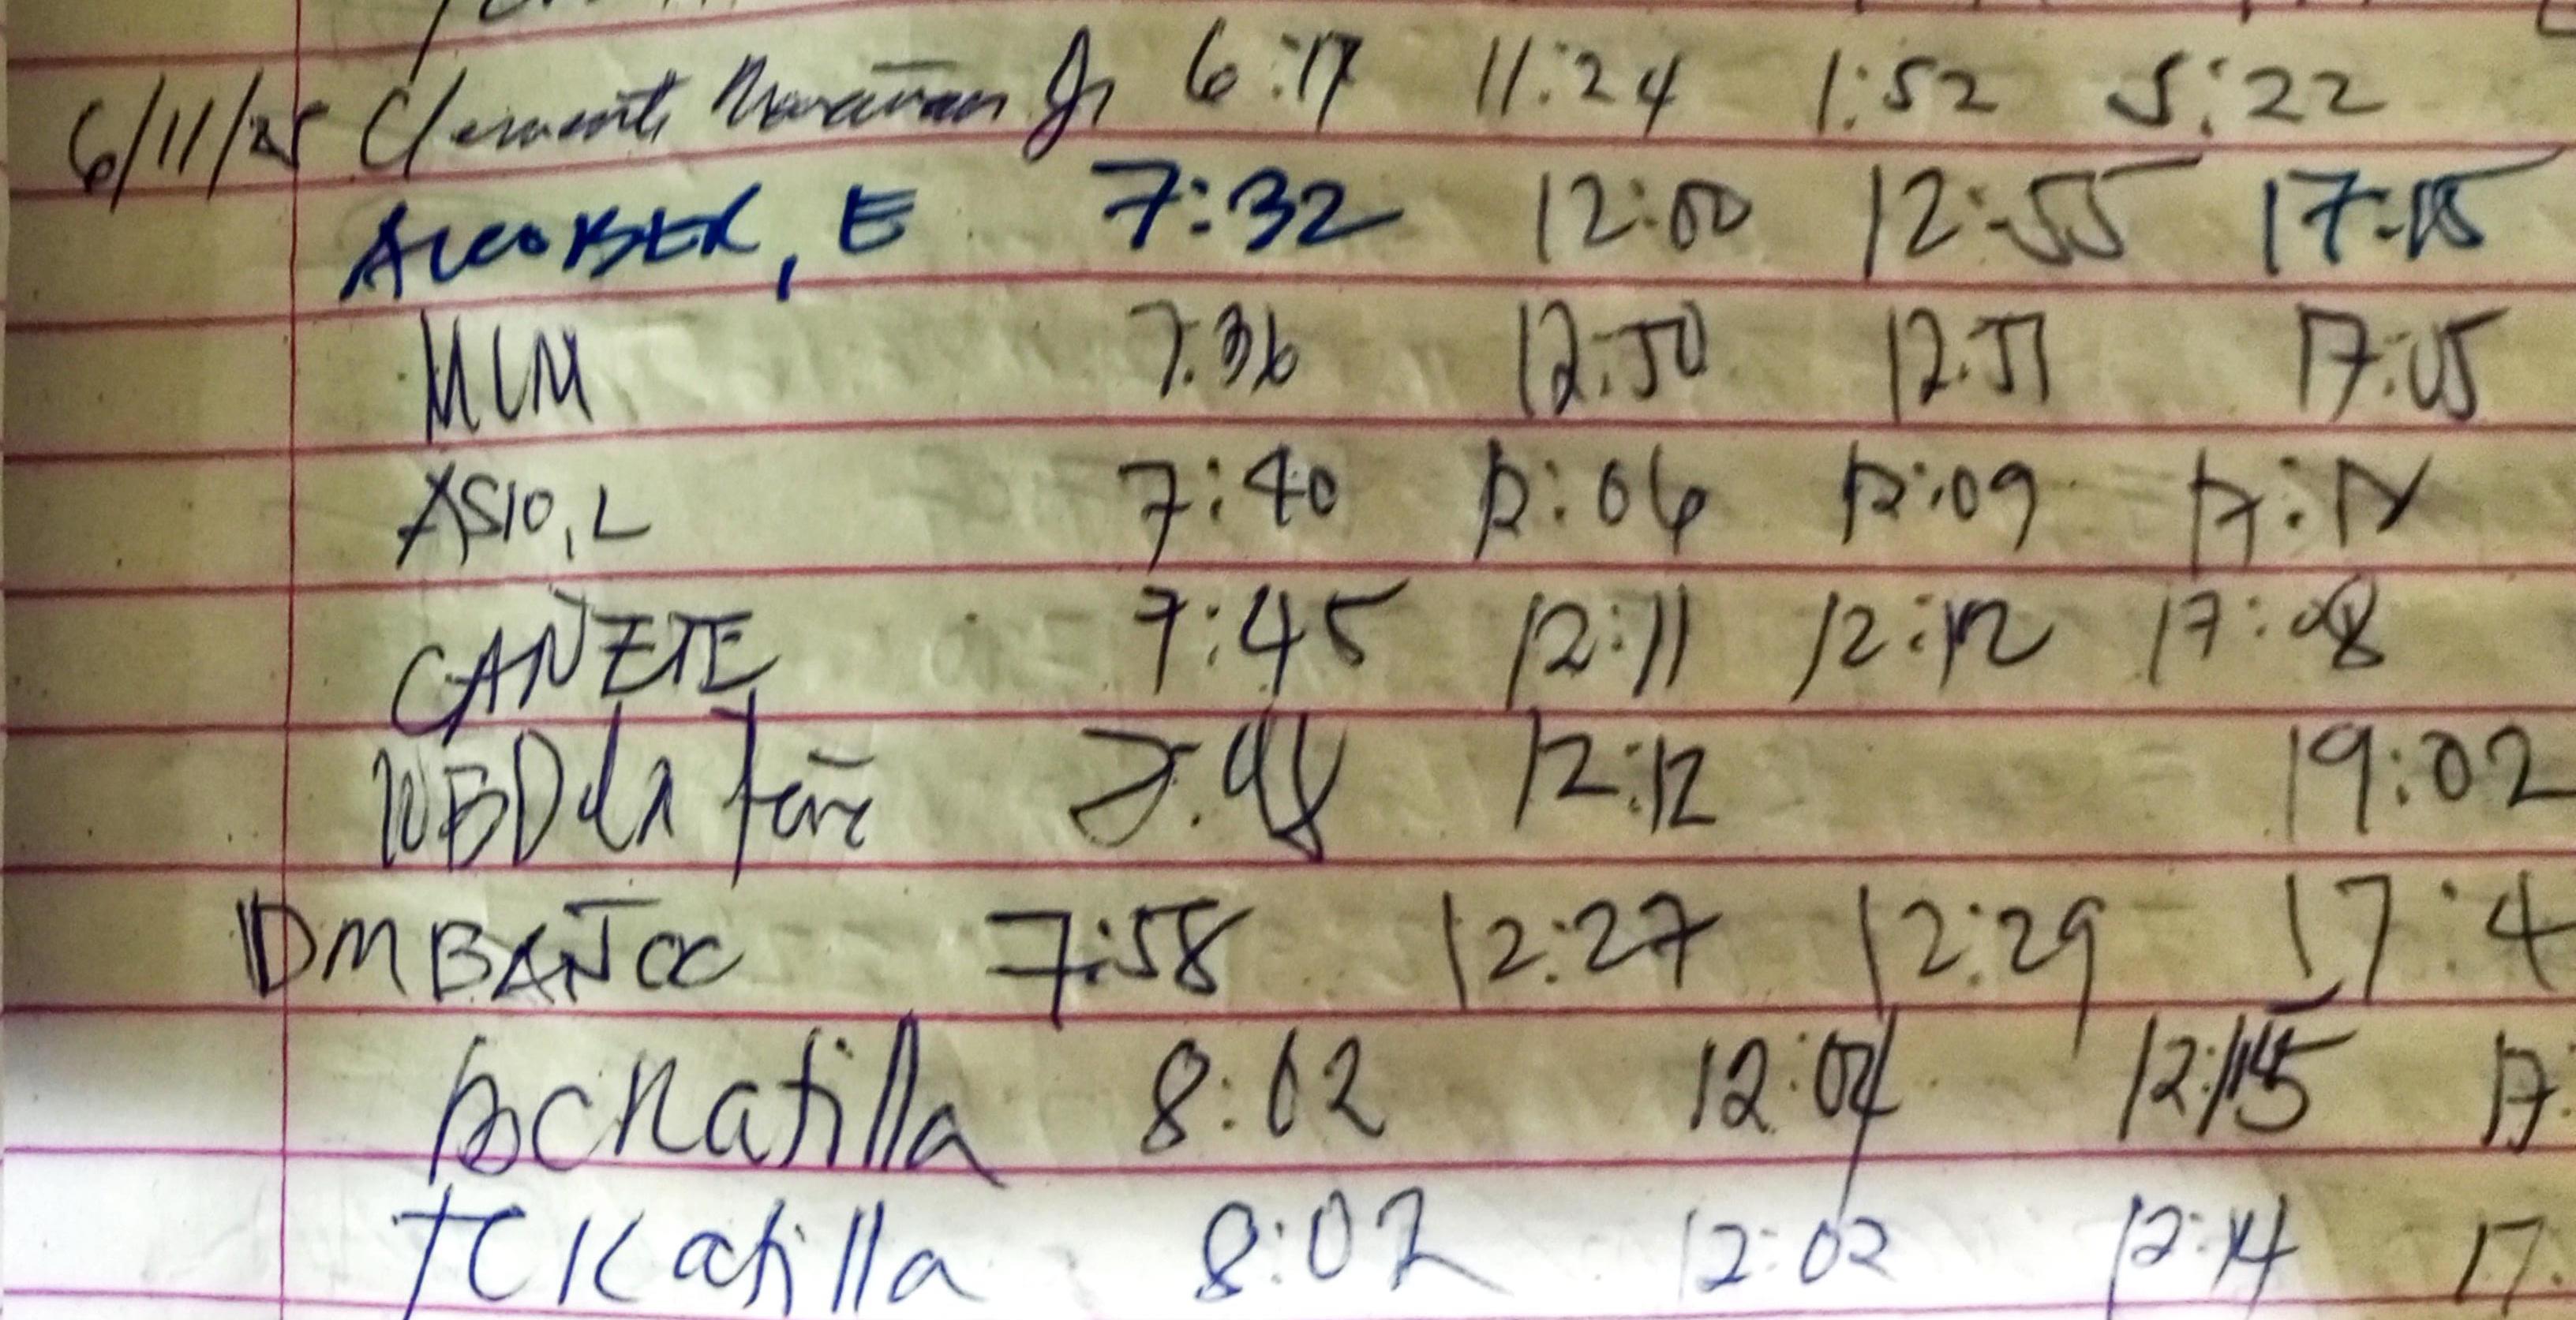 6/11/25 Clemente Jr 6:17 11:24 1:52 5:22
ALCOBER, E 7:32 12:00 12:55 17:15
MLM 7:36 12:50 12:51 17:05
ASIO, L 7:40 12:06 12:09 17:12
CAÑETE 7:45 12:11 12:12 17:08
WBDela Peña 7:48 12:12 19:02
DMBAÑOC 7:58 12:27 12:29 17:4
8:02 12:04 12:15 17:
TCKatilla 8:02 12:02 12:14 17: